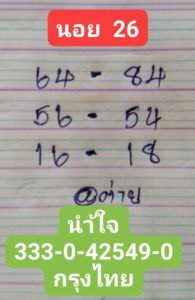 นอย 26
64 - 84
56 - 54
16 - 18
@ต่าย
นำ้ใจ
333-0-42549-0
กรุงไทย